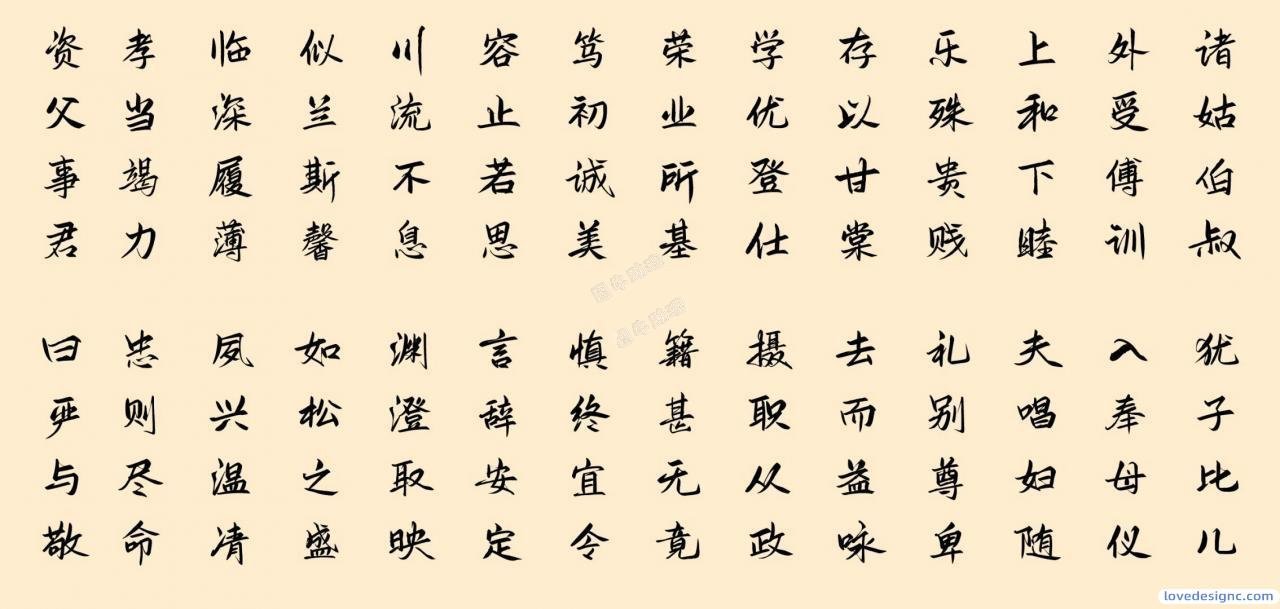 资父事君
曰严与敬
孝当竭力
忠则尽命
临深履薄
夙兴温凊
似兰斯馨
如松之盛
川流不息
渊澄取映
容止若思
言辞安定
笃初诚美
慎终宜令
荣业所基
籍甚无竟
学优登仕
摄职从政
存以甘棠
去而益咏
乐殊贵贱
礼别尊卑
上和下睦
夫唱妇随
外受傅训
入奉母仪
诸姑伯叔
犹子比儿
lovedesignc.com